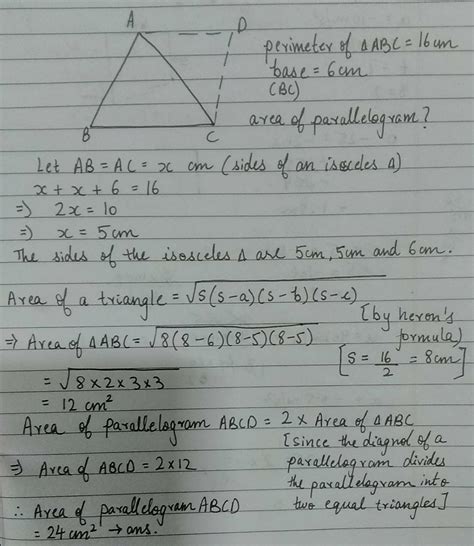 A D
perimeter of ΔABC = 16cm
base = 6cm
(BC)
area of parallelogram?
B C
Let AB = AC = x cm (sides of an isosceles Δ)
x + x + 6 = 16
⇒) 2x = 10
⇒) x = 5cm
The sides of the isosceles Δ are 5cm, 5cm and 6cm.
Area of a triangle = √s(s-a)(s-b)(s-c)
[by heron's
formula]
⇒ Area of ΔABC = √8(8-6)(8-5)(8-5)
[S = 16/2 = 8cm]
= √8×2×3×3
= 12 cm²
Area of parallelogram ABCD = 2 × Area of ΔABC
[since the diagnol of a
parallelogram divides
the parallelogram into
two equal triangles]
⇒ Area of ABCD = 2×12
∴ Area of parallelogram ABCD
= 24cm² → ans.